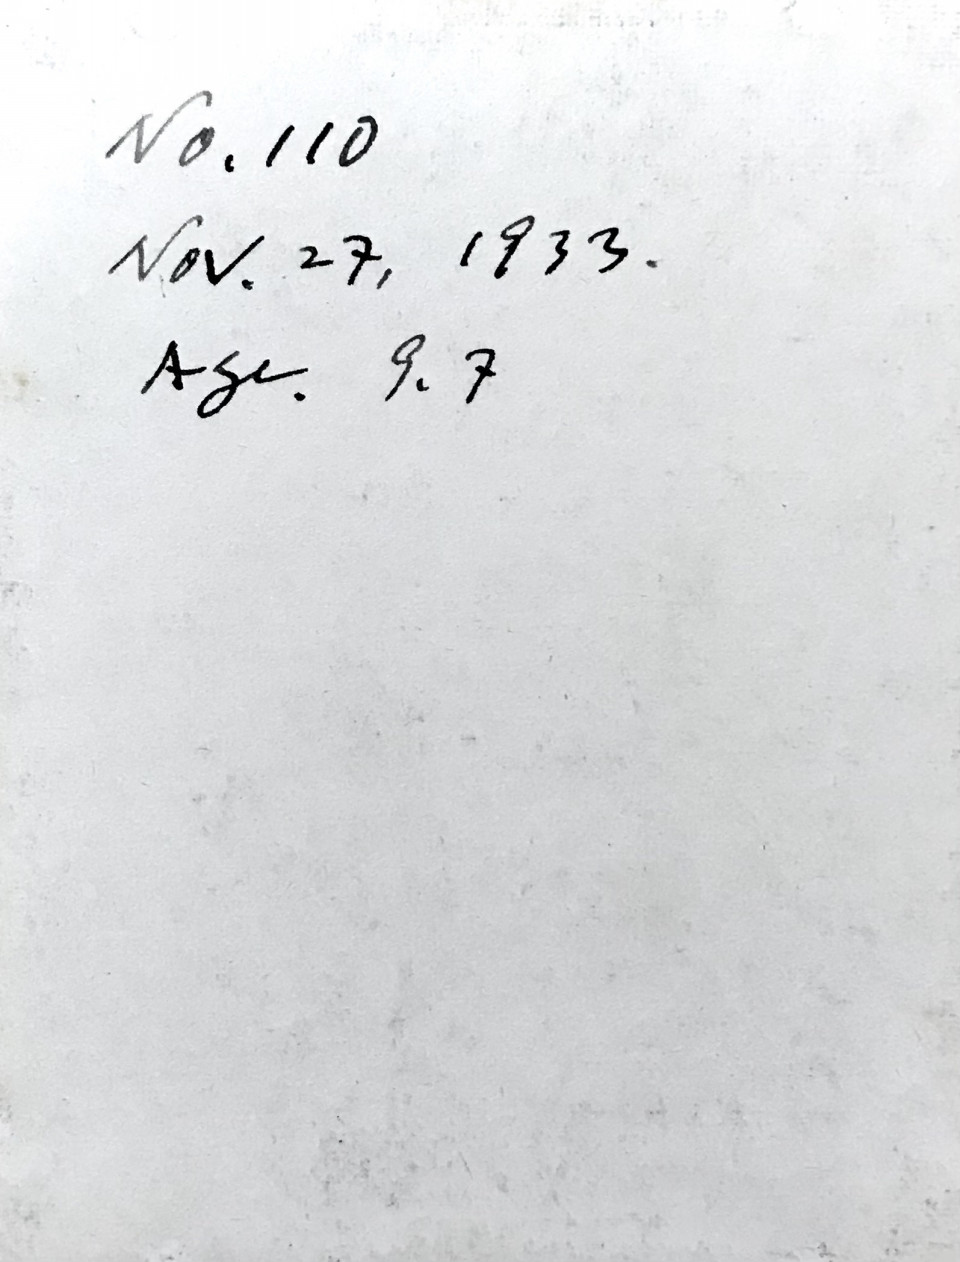 No. 110
Nov. 27, 1933.
Age. 9.7